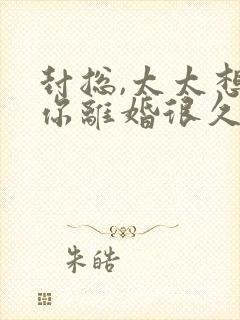 封总,太太想
你離婚很久
朱皓